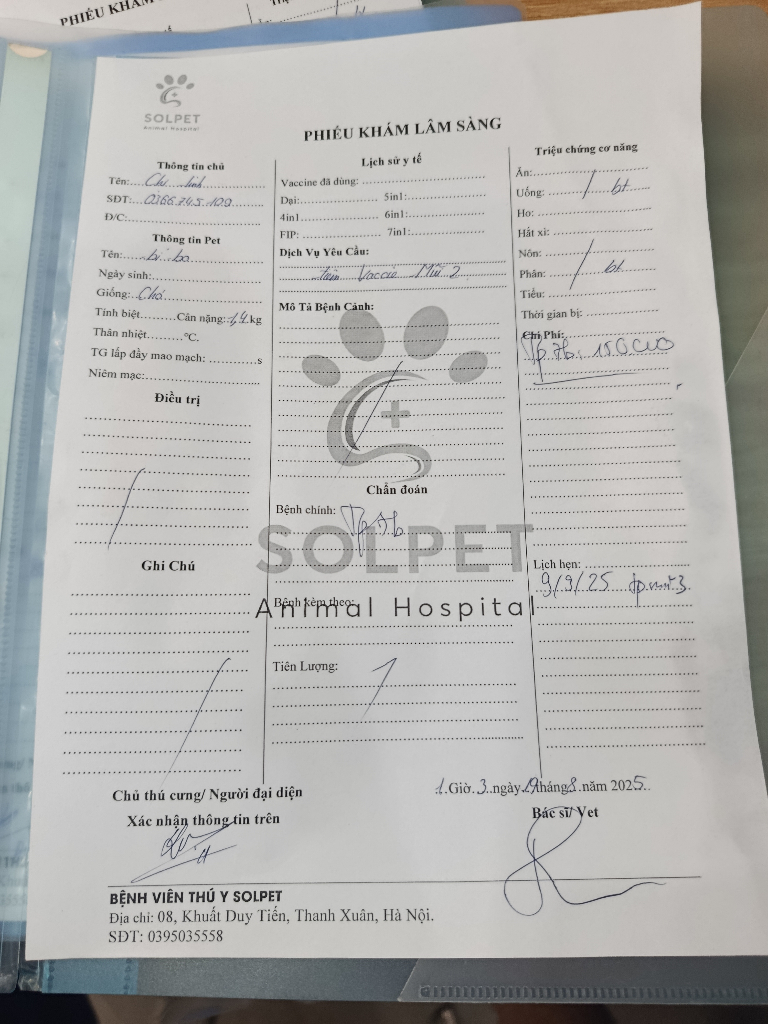 PHIẾU KHÁM
SOLPET
Animal Hospital
PHIẾU KHÁM LÂM SÀNG
Thông tin chủ
Tên:
SĐT: 0366.745.109
Đ/C:
Thông tin Pet
Tên:
Ngày sinh:
Giống: Chó
Tính biệt Cân nặng: 1,4 kg
Thân nhiệt °C.
TG lấp đầy mao mạch: s
Niêm mạc:
Điều trị
Ghi Chú
Lịch sử y tế
Vaccine đã dùng:
Dại: 5in1:
4in1 6in1:
FIP: 7in1:
Dịch Vụ Yêu Cầu:
tiêm Vaccie Mũi 2
Mô Tả Bệnh Cảnh:
Chẩn đoán
Bệnh chính:
SOLPET
Animal Hospital
Bệnh kèm theo:
Tiên Lượng:
Triệu chứng cơ năng
Ăn:
Uống: bt
Ho:
Hắt xì:
Nôn:
Phân: bt
Tiểu:
Thời gian bị:
Chi Phí:
Lịch hẹn:
9/9/25 mũi 3
Chủ thú cưng/ Người đại diện
Xác nhận thông tin trên
Giờ 3 ngày 19 tháng 8 năm 2025
Bác sĩ/ Vet
BỆNH VIỆN THÚ Y SOLPET
Địa chỉ: 08, Khuất Duy Tiến, Thanh Xuân, Hà Nội.
SĐT: 0395035558